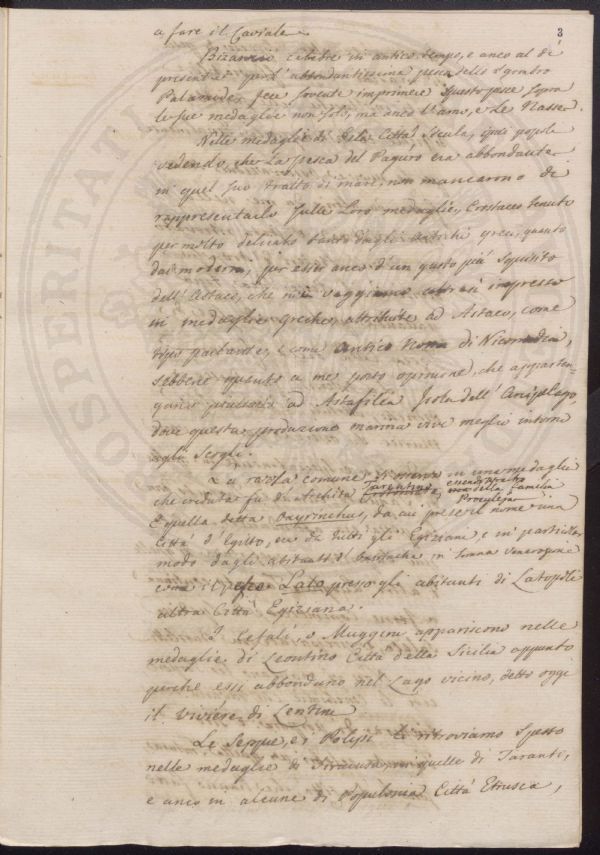 3
a fare il Caviale.
Bizanzio celebre in antico tempo, e anco al dì
presente per l'abbondantissima pesca dello Sgombro
Palamide, fece sovente imprimere questo pesce sopra
le sue medaglie non solo, ma anco l'amo, e le Nasse.
Nelle medaglie di Città Sicula, quei popoli
vedendo, che la pesca del Paguro era abbondante
in quel suo tratto di mare, non mancarono di
rappresentarlo sulle Loro medaglie, Crostaceo tenuto
per molto delicato tanto dagli Antichi greci, quanto
dai moderni, per esser anco d'un gusto più squisito
dell'Astaco, che noi veggiamo altresì impresso
in medaglie greche, attribuite ad Astaco, come
tipo parlante, e come antico nome di Nicomedia,
sebbene quanto a me porto opinione, che apparten-
gano piuttosto ad Astafilea Isola dell'Arcipelago,
dove questa produzione marina vive meglio intorno
agli Scogli.
La razza comune in una medaglia
che creduta fu di Archita Tarentino, essendo della Famiglia
Proculeja
E quella detta Oxyrinchus, da cui prese il nome una
Città d'Egitto, era da tutti gli Egiziani e in particolar
modo dagli abitanti d' in somma venerazione
come il pesce Lato presso gli abitanti di Latopoli
altra Città Egiziana.
I Cefali, o Muggini appariscono nelle
medaglie di Leontino Città della Sicilia appunto
perché essi abbondano nel Lago vicino, detto oggi
il viviere di Lentini
Le Seppie, e i Polipi li ritroviamo spesso
nelle medaglie di Siracusa, in quelle di Taranto,
e anco in alcune di Populonia Città Etrusca,